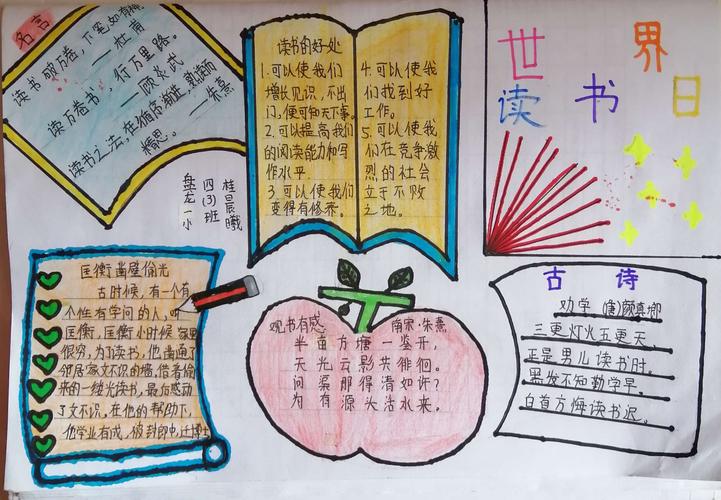 名言
读书破万卷，下笔如有神。
——杜甫
读万卷书，行万里路。
——顾炎武
读书之法，在循序渐进，熟读而
精思。——朱熹
盘龙一小
四(3)班
桂晨曦
读书的好处
1.可以使我们
增长见识，不出
门，便可知天下事。
2.可以提高我们
的阅读能力和写
作水平.
3.可以使我们
变得有修养。
4.可以使我
们找到好
工作。
5.可以使我
们在竞争激
烈的社会
立于不败
之地。
世界
读书日
匡衡凿壁偷光
古时候，有一个有
个性有学问的人，叫
匡衡，匡衡小时候家里
很穷，为了读书，他凿通了
邻居家文不识的墙，借着偷
来的一缕光读书，最后感动
了文不识。在他的帮助下，
他学业有成，被封郎中，迁博士
观书有感 南宋：朱熹
半亩方塘一鉴开，
天光云影共徘徊。
问渠那得清如许？
为有源头活水来。
古诗
劝学 (唐)颜真卿
三更灯火五更天，
正是男儿读书时。
黑发不知勤学早，
白首方悔读书迟。